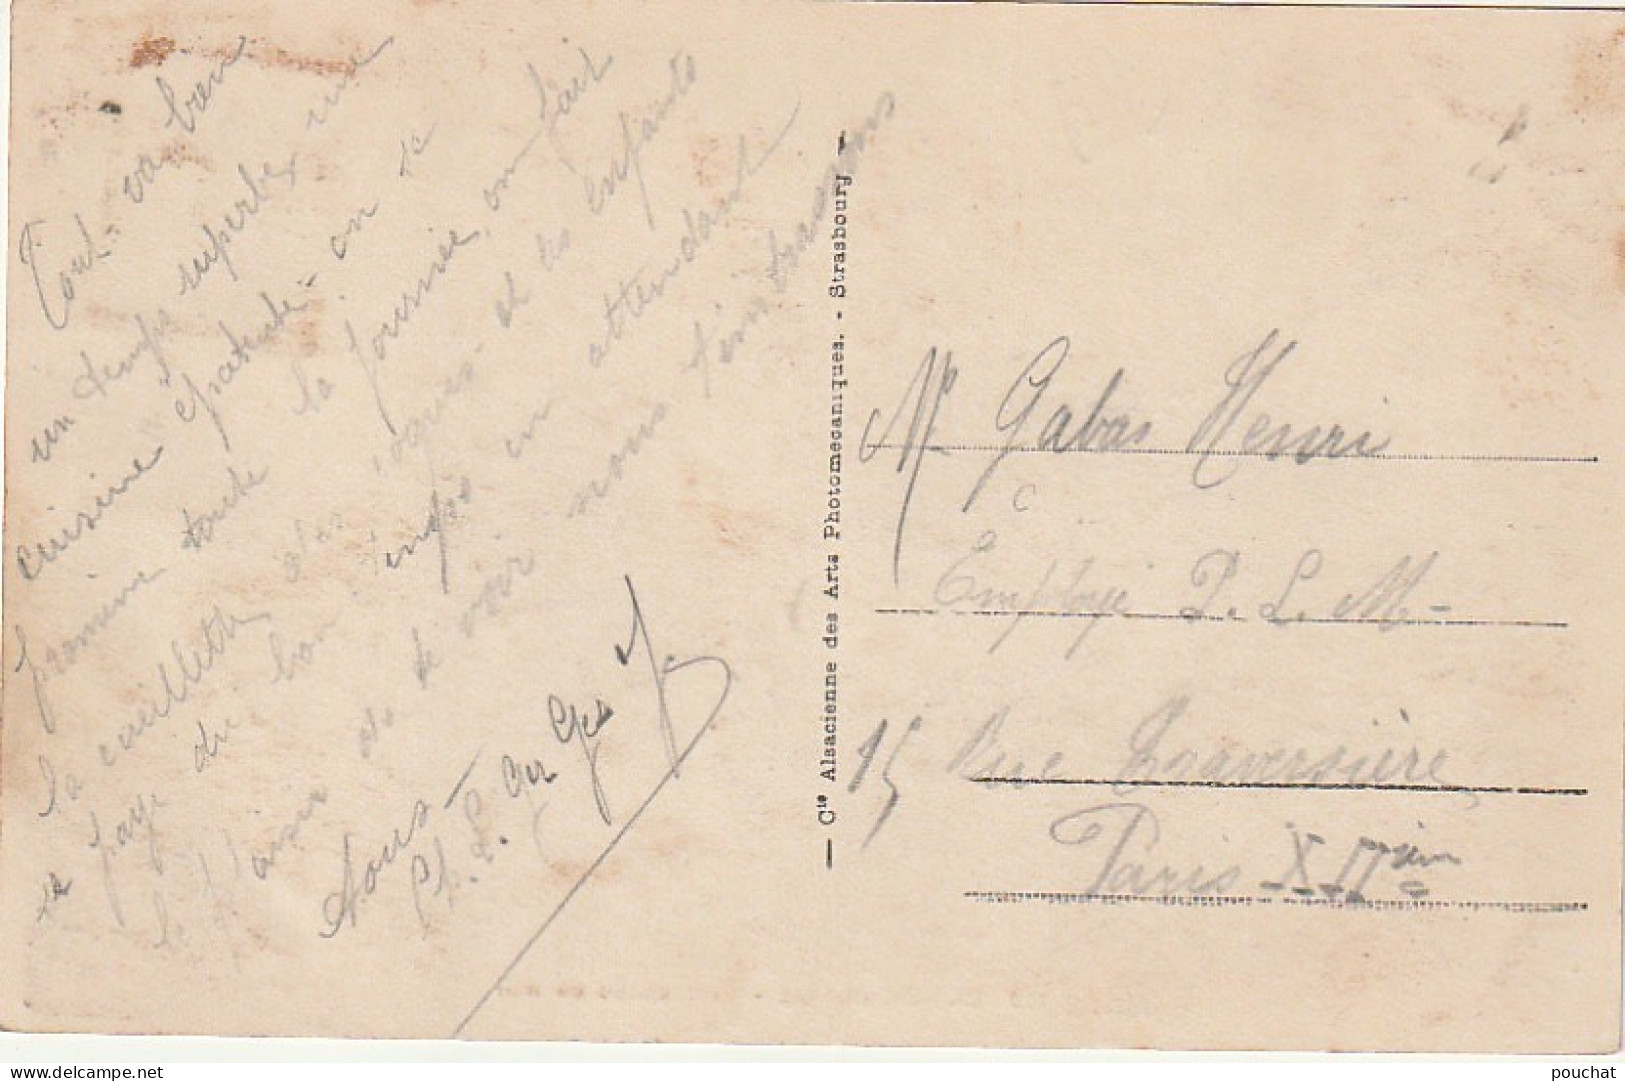 Tout va bien
un temps superbe, une
cuisine épatante - on se
promène toute la journée, on fait
la cueillette des et les enfants
se paye du bon temps en attendant
le plaisir de te voir nous t'embrassons
Tous -
— Cie Alsacienne des Arts Photomécaniques. - Strasbourg —
Mr Gabas Henri
Employé P. L. M-
15 Rue Traversière
Paris XIIèm
delcampe.net
pouchat